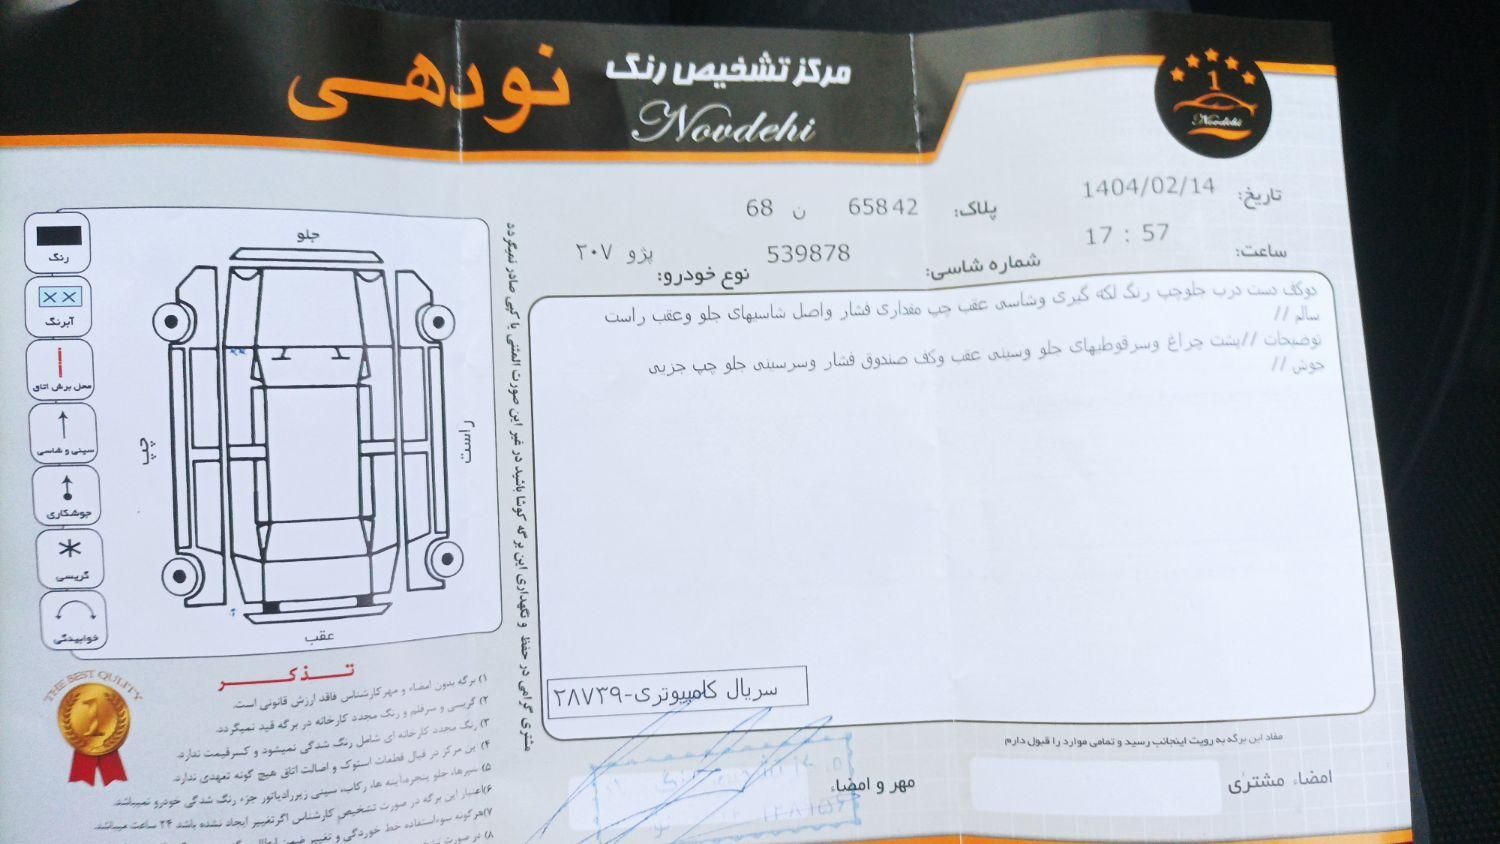 نودهی
مرکز تشخیص رنگ
Novdehi
1
Novdehi
تاریخ: 1404/02/14
پلاک: 65842 ن 68
ساعت: 17 : 57
شماره شاسی: 539878
نوع خودرو: پژو ۲۰۷
دوکف دست درب جلوچپ رنگ لکه گیری وشاسی عقب چپ مقداری فشار واصل شاسیهای جلو وعقب راست
سالم //
توضیحات //پشت چراغ وسرقوطیهای جلو وسینی عقب وکف صندوق فشار وسرسینی جلو چپ جزیی
جوش //
سریال کامپیوتری-۲۸۷۳۹
مفاد این برگه به رویت اینجانب رسید و تمامی موارد را قبول دارم
امضاء مشتری
مهر و امضاء
مشتری گرامی در حفظ و نگهداری این برگه کوشا باشید در غیر این صورت المثنی یا کپی صادر نمیگردد
جلو
راست
چپ
عقب
رنگ
آبرنگ
محل برش اتاق
سینی و شاسی
جوشکاری
گریسی
خوابیدگی
THE BEST QULITY
1
تذکر
۱) برگه بدون امضاء و مهر کارشناس فاقد ارزش قانونی است.
۲) گریسی و سرقلم و رنگ مجدد کارخانه در برگه قید نمیگردد.
۳) رنگ مجدد کارخانه ای شامل رنگ شدگی نمیشود و کسرقیمت ندارد.
۴) این مرکز در قبال قطعات استوک و اصالت اتاق هیچ گونه تعهدی ندارد.
۵) سپرها، جلو پنجره، آینه ها، رکاب، سینی زیررادیاتور جزء رنگ شدگی خودرو نمیباشد.
۶) اعتبار این برگه در صورت تشخیص کارشناس اگر تغییر ایجاد نشده باشد ۲۴ ساعت میباشد.
۷) هرگونه سوءاستفاده خط خوردگی و تغییر ضمن
۸) در صورت